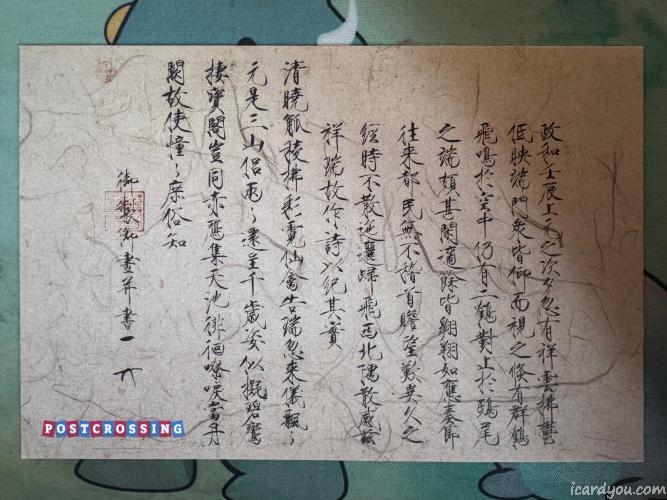 政和壬辰上元之次夕忽有祥雲拂鬱
低映端門衆皆仰而視之倏有群鶴
飛鳴於空中仍有二鶴對止於鴟尾
之端頗甚閑適餘皆翱翔如應奏節
往來都民無不稽首瞻望歎異久之
經時不散迤邐歸飛西北隅散感茲
祥瑞故作詩以紀其實
清曉觚稜拂彩霓仙禽告瑞忽來儀飄々
元是三山侶兩々還呈千歲姿似擬碧鸞
棲寶閣豈同赤鴈集天池徘徊嘹唳當丹
闕故使憧々庶俗知
御製御畫并書
POSTCROSSING
icardyou.com